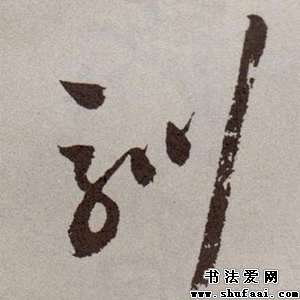 訓
书法爱网
www.shufaai.com